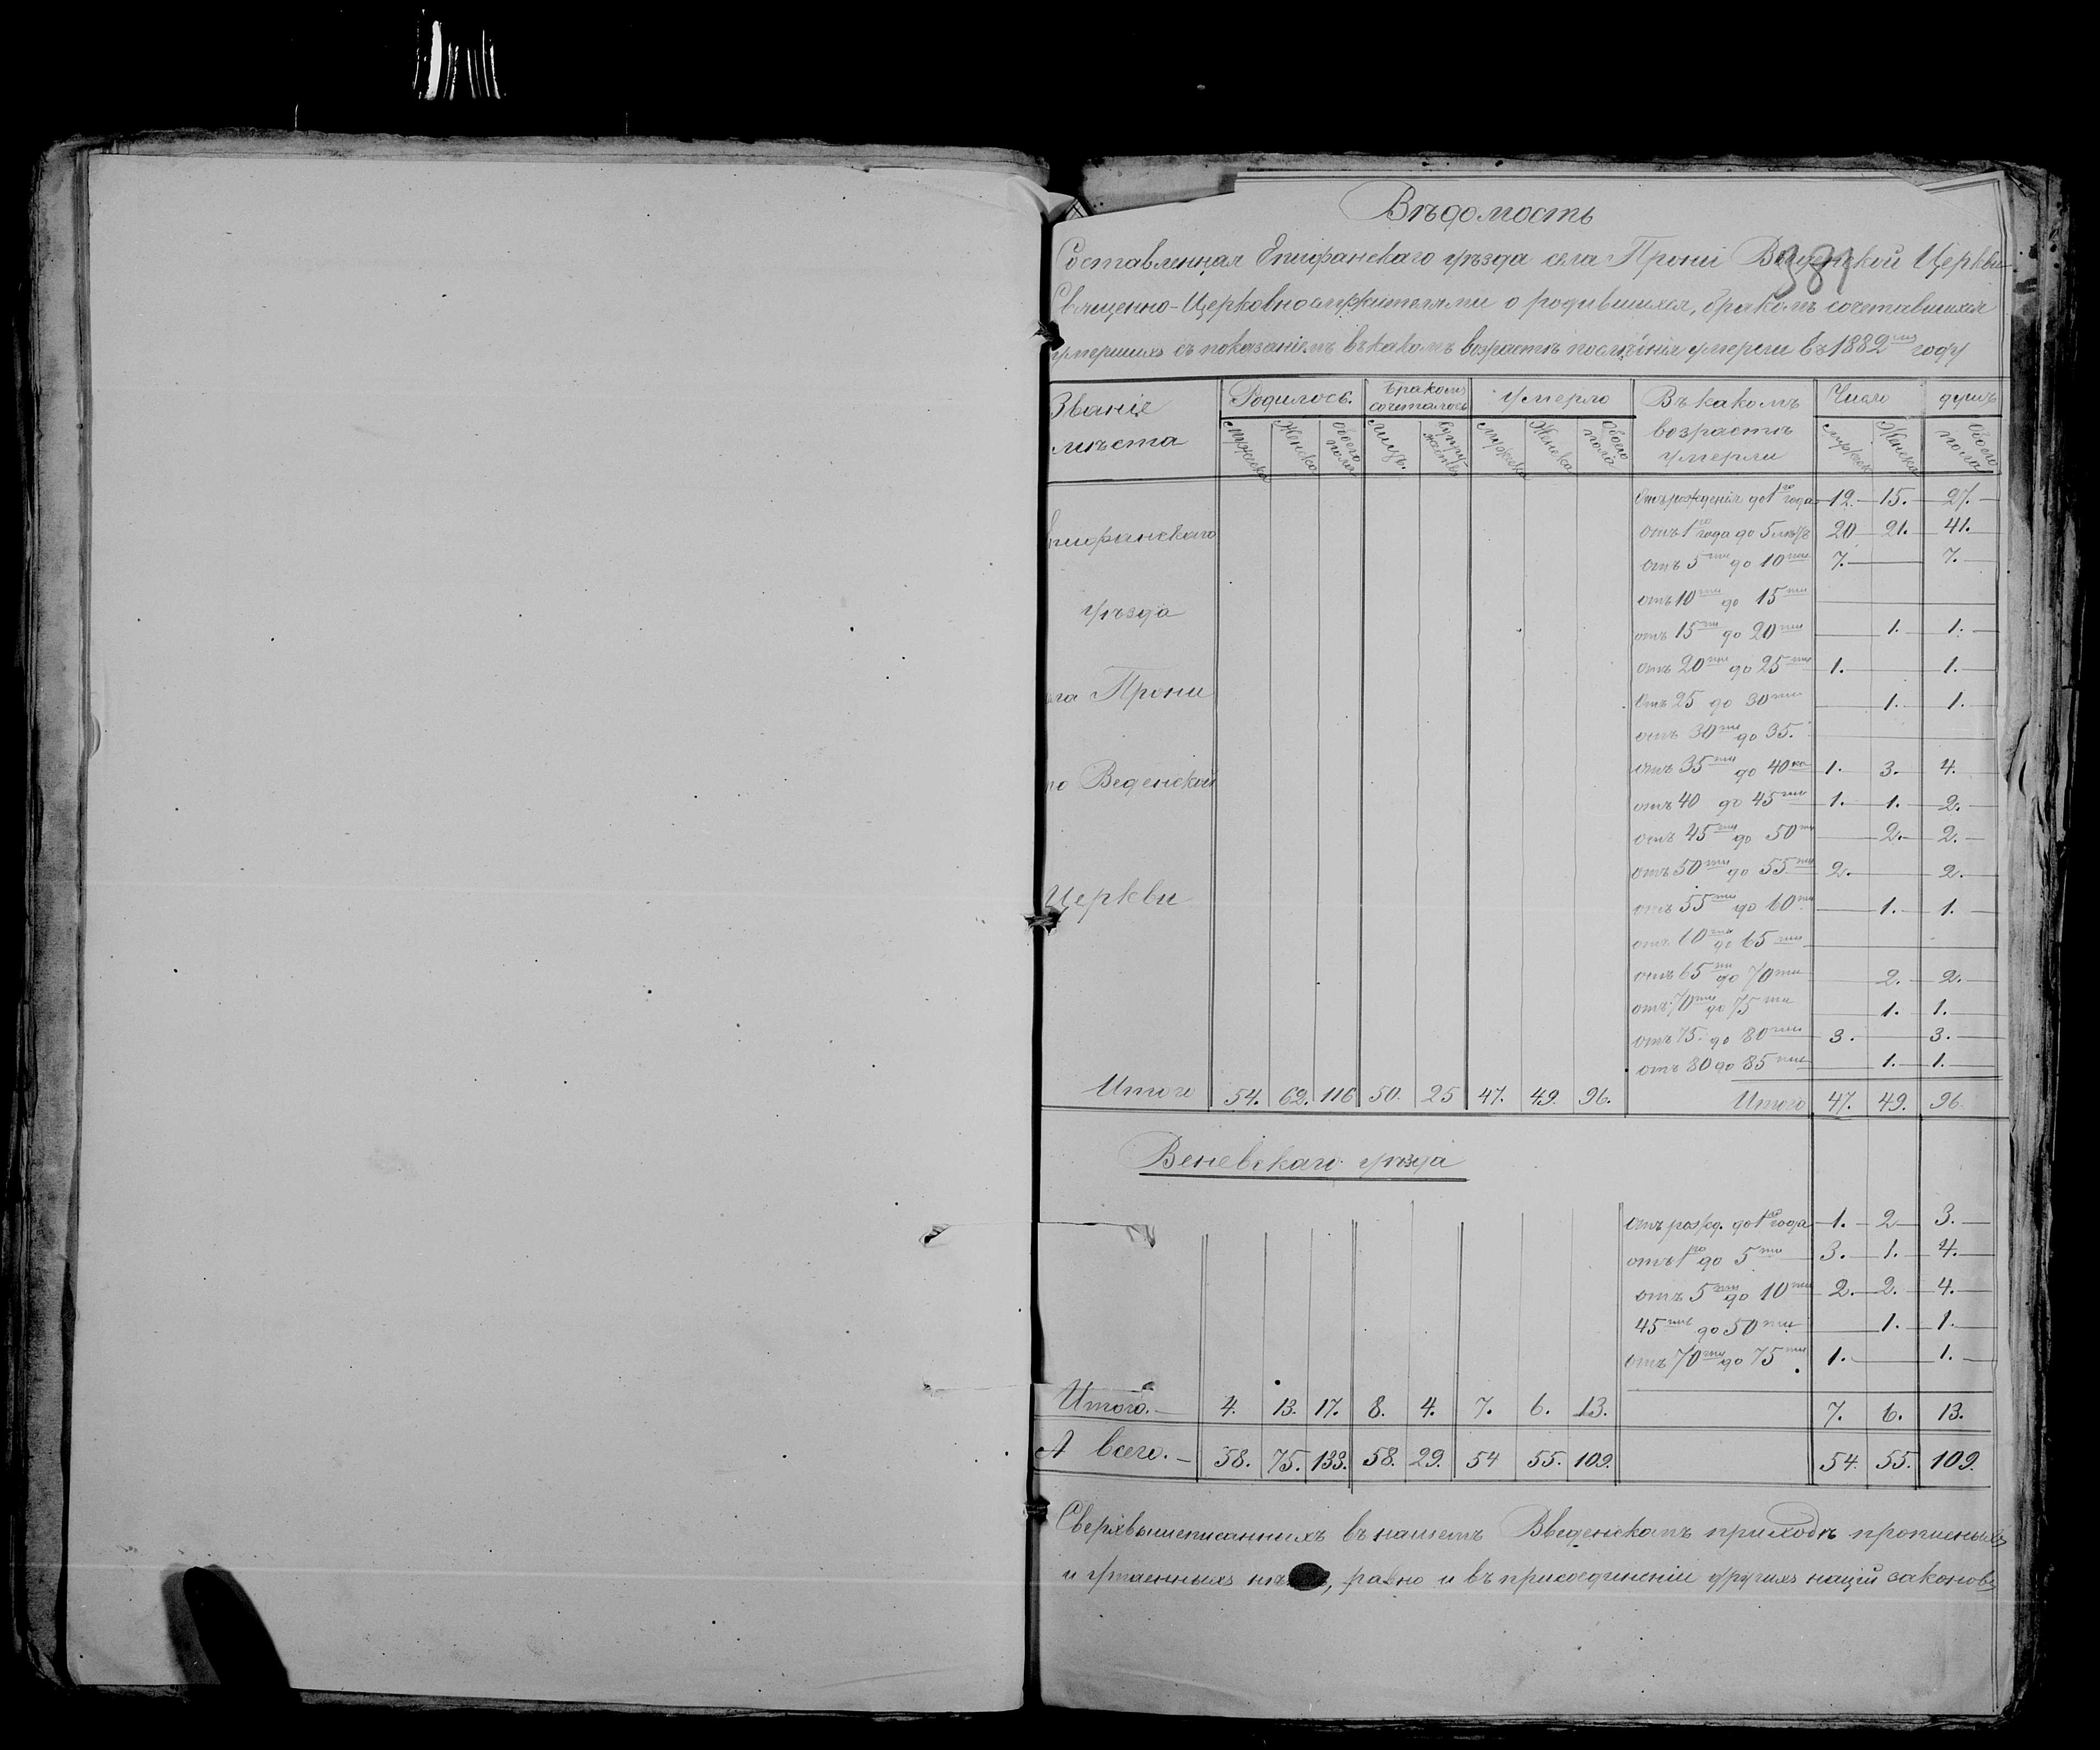 Вѣдомость
381
Составленная Епифанскаго уѣзда села Прони Веденской Церкви
Священно-Церковнослужителями о родившихся, бракомъ сочетавшихся
умершихъ съ показаніемъ въ какомъ возрастѣ послѣднія умерли въ 1882 году
Званіе мѣста | Родилось. | Бракомъ сочеталось | Умерло | Въ какомъ возрастѣ умерли | Число душъ
Мужеска | Женска | Обоего пола | Лицъ. | Супружествъ | Мужеска | Женска | Обоего пола | Мужеск | Женска | Обоего пола
Отъ рожденія до 1го года 12. 15. 27.
Епифанскаго
отъ 1го года до 5 лѣтъ 20 21. 41.
отъ 5ти до 10ти 7. 7.
уѣзда
отъ 10ти до 15ти
отъ 15ти до 20ти 1. 1.
отъ 20ти до 25ти 1. 1.
ла Прони
Отъ 25 до 30ти 1. 1.
отъ 30ти до 35.
по Веденской
отъ 35ти до 40ка 1. 3. 4.
отъ 40 до 45ти 1. 1. 2.
отъ 45ти до 50ти 2. 2.
отъ 50ти до 55ти 2. 2.
Церкви
отъ 55ти до 60ти 1. 1.
отъ 60ти до 65ти
отъ 65ти до 70ти 2. 2.
отъ 70ти до 75ти 1. 1.
отъ 75. до 80ти 3. 3.
отъ 80 до 85ти 1. 1.
Итого 54. 62. 116 50. 25 47. 49. 96. Итого 47. 49. 96.
Веневскаго уѣзда
отъ рожд. до 1го года 1. 2 3.
отъ 1го до 5ти 3. 1. 4.
отъ 5ти до 10ти 2. 2. 4.
45ти до 50ти 1. 1.
отъ 70ти до 75ти 1. 1.
Итого. 4. 13. 17. 8. 4. 7. 6. 13. 7. 6. 13.
А всего. 58. 75. 133. 58. 29. 54 55. 109. 54. 55. 109.
Сверхвышеписанныхъ въ нашемъ Введенскомъ приходѣ прописныхъ
и утаенныхъ, равно и въ присоединеніи другихъ нацiй законовъ